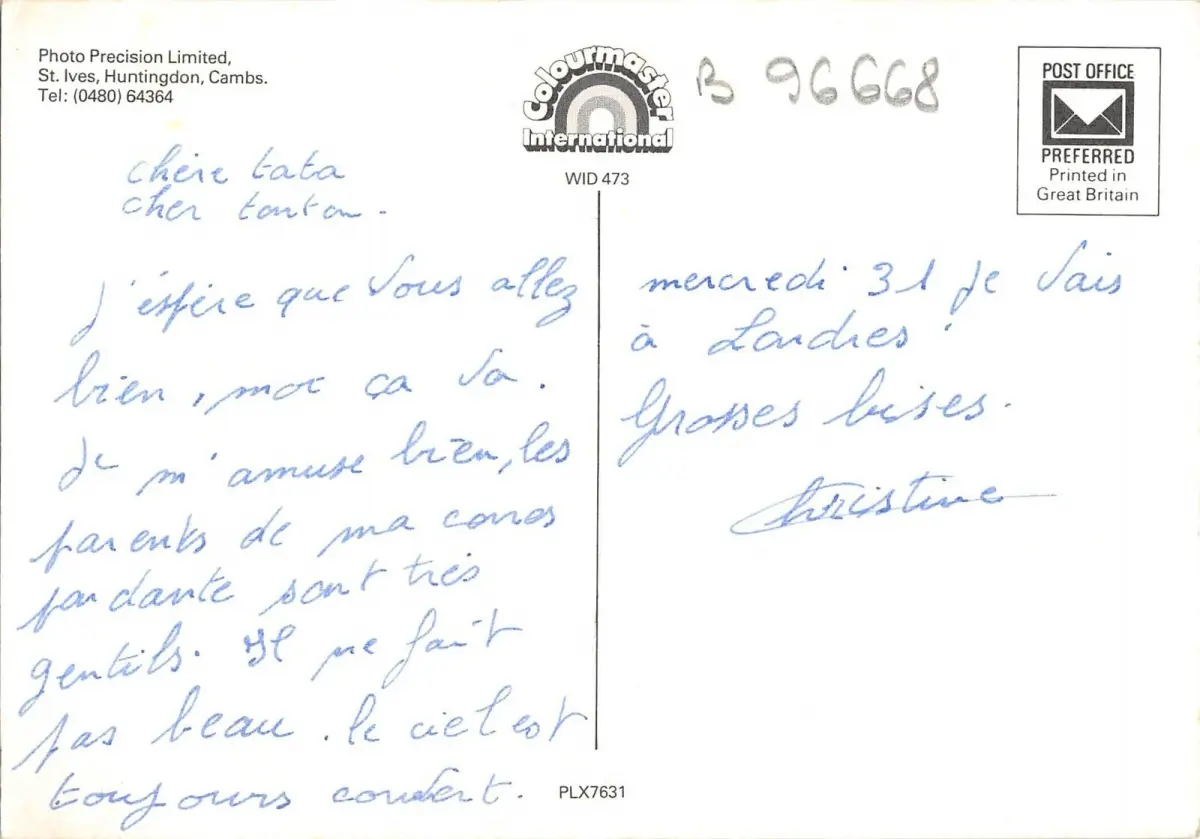 Photo Precision Limited,
St. Ives, Huntingdon, Cambs.
Tel: (0480) 64364
Colourmaster
International
WID 473
B 96668
POST OFFICE
PREFERRED
Printed in
Great Britain
chère tata
cher tonton.
J'éspère que vous allez
bien, moi ça va.
Je m'amuse bien, les
parents de ma corres
pondante sont très
gentils. Il ne fait
pas beau. le ciel est
toujours couvert.
mercredi 31 je vais
à Londres!
Grosses bises.
Christine
PLX7631